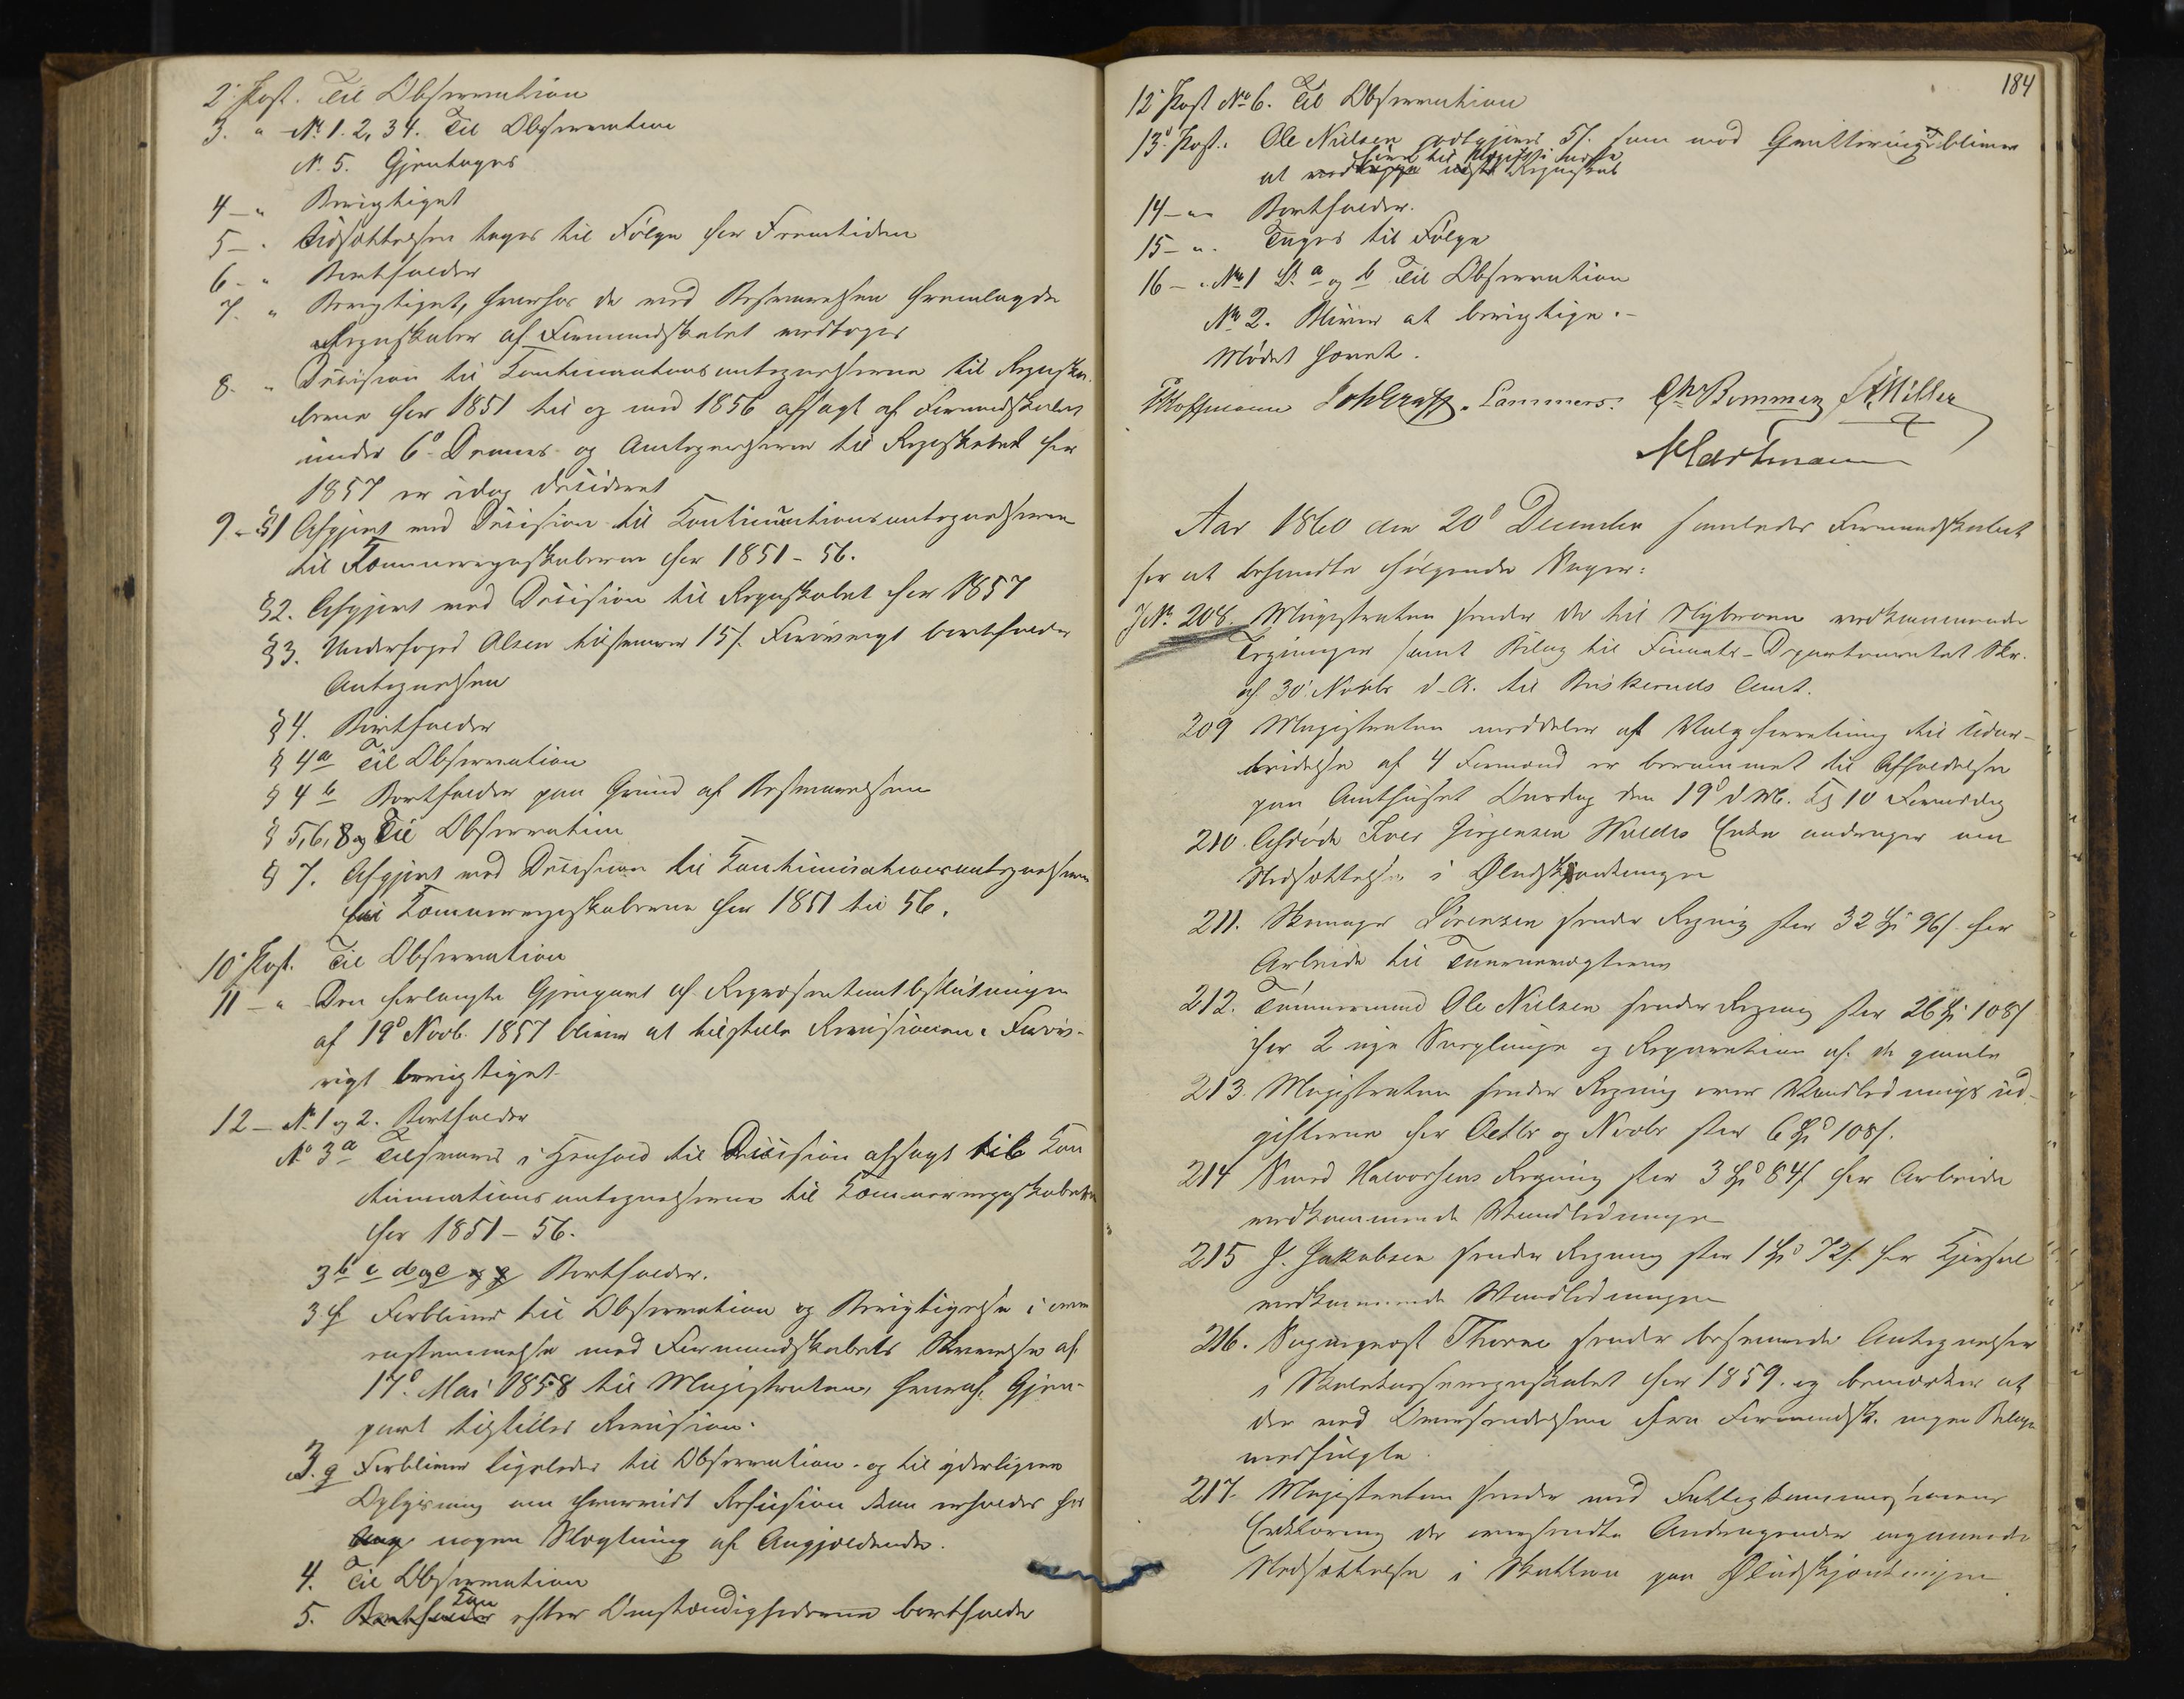 2' Post. Til Observation
3. " No 1. 2, 3 4. Til Observation
N. 5. Gjentages
4 - " Berigtiget
5 - " Udsættelsen tages til Følge for Fremtiden
6 - " Bortfalder
7. " Berigtiget, hvorhos de med Besvarelsen fremlagde
Regnskaber af Formandskabet modtoges
8. " Decision til Continuationsantegnelserne til Regnska-
berne for 1851 til og med 1856 afsagt af Formandskabet
under 6' Dennes og Antegnelserne til Regnskabet for
1857 er idag decideret
9 - §1 Afgjort med Decision til Continuationsantegnelserne
til Kæmnerregnskaberne for 1851 - 56.
§2. Afgjort med Decision til Regnskabet for 1857
§3. Underfoged Olsen tilsvarer 15 s. Forøvrigt bortfalder
Antegnelsen
§4. Bortfalder
§ 4a Til Observation
§ 4b Bortfalder paa Grund af Besvarelsen
§ 5, 6, 8 og Til Observation
§ 7. Afgjort med Decision til Continuationsantegnelserne
til Kæmnerregnskaberne for 1851 til 56.
10' Post. Til Observation
11 - " Den forlangte Gjenpart af Repræsentantbeslutningen
af 19' Novb. 1857 bliver at tilstille Revisionen. Forøv-
rigt berigtiget.
12 - N. 1 og 2. Bortfalder
No 3a Tilsvares i Henhold til Decision afsagt til Con
tinuationsantegnelserne til Kæmnerregnskaberne
for 1851 - 56.
3 b c d og e og g Bortfalder.
3 f Forbliver til Observation og Berigtigelse i over
ensstemmelse med Formandskabets Skrivelse af
17' Mai 1858 til Magistraten, hvoraf Gjen-
part tilstilles Revision.
3. g Forbliver ligeledes til Observation og til yderligere
Oplysning om hvorvidt Refusion kan erholdes hos
nogen Slægtning af Angjældende.
4. Til Observation
5. Bortfalder Kan efter Omstændighederne bortfalde
184
12' Post No 6. Til Observation
13' Post. Ole Nielsen godtgjøres 5 s. som mod Qvittering bliver
at
14 - " - Bortfalder.
15 - " . Tages til Følge
16 - " No 1 L. a og b Til Observation
No 2. Bliver at berigtige. -
Mødet hævet.
Hoffmann Lammers. Chr Bommen A. Miller
Aar 1860 den 20' December samledes Formandskabet
for at behandle følgende Sager:
J No 208. Magistraten sender de til Nybroen vedkommende
Tegninger samt Bilag til Finants-Departementet Skr.
af 30' Novbr d. A. til Buskeruds Amt.
209 Magistraten meddeler at Valgforretning til Udar-
beidelse af 4 Formænd er berammet til Afholdelse
paa Amthuset Onsdag den 19' d. M. Kl 10 Formiddag
210. Afdøde Iver Jørgensen Enke andrager om
Nedsættelse i Øludskjænkningen
211. Skomager Sørensen sender Regning stor 32 Spd 96 s. for
Arbeide til
212. Tømmermand Ole Nielsen sender Regning stor 26 Spd 108 s
for 2 nye og Reparation af de gamle
213. Magistraten sender Regning over Vandledningsud-
gifterne for Octbr og Novbr stor 6 Spd 108 s.
214 Smed Halvorsens Regning stor 3 Spd 84 s for Arbeide
vedkommende Vandledningen
215 J. Jakobsen sender Regning stor 1 Spd 72 s. for Kjørsel
vedkommende Vandledningen
216. Sogneprest Thorne sender besvarede Antegnelser
i Skolekasseregnskabet for 1859. og bemærker at
der ved Oversendelsen fra Formandsk. ingen Bilage
medfulgte.
217. Magistraten sender med Fattigkommissionens
Erklæring de oversendte Andragender angaaende
Nedsættelse i Skatten paa Øludskjænkningen